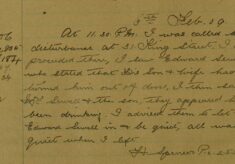 5th Feb. 19
At 11.30 P.M. I was called to a
disturbance at 31 King Street. I
proceeded there, I saw Edward Sewell
who stated that his Son & wife had
turned him out of doors, I then saw
& the son, they appeared to have
been drinking. I advised them to let
Edward Sewell in & be quiet, all was
quiet when I left
H. Spencer Pc.